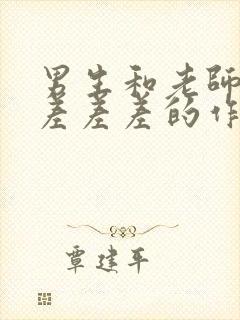 男生和老师
差差差的作
覃建平